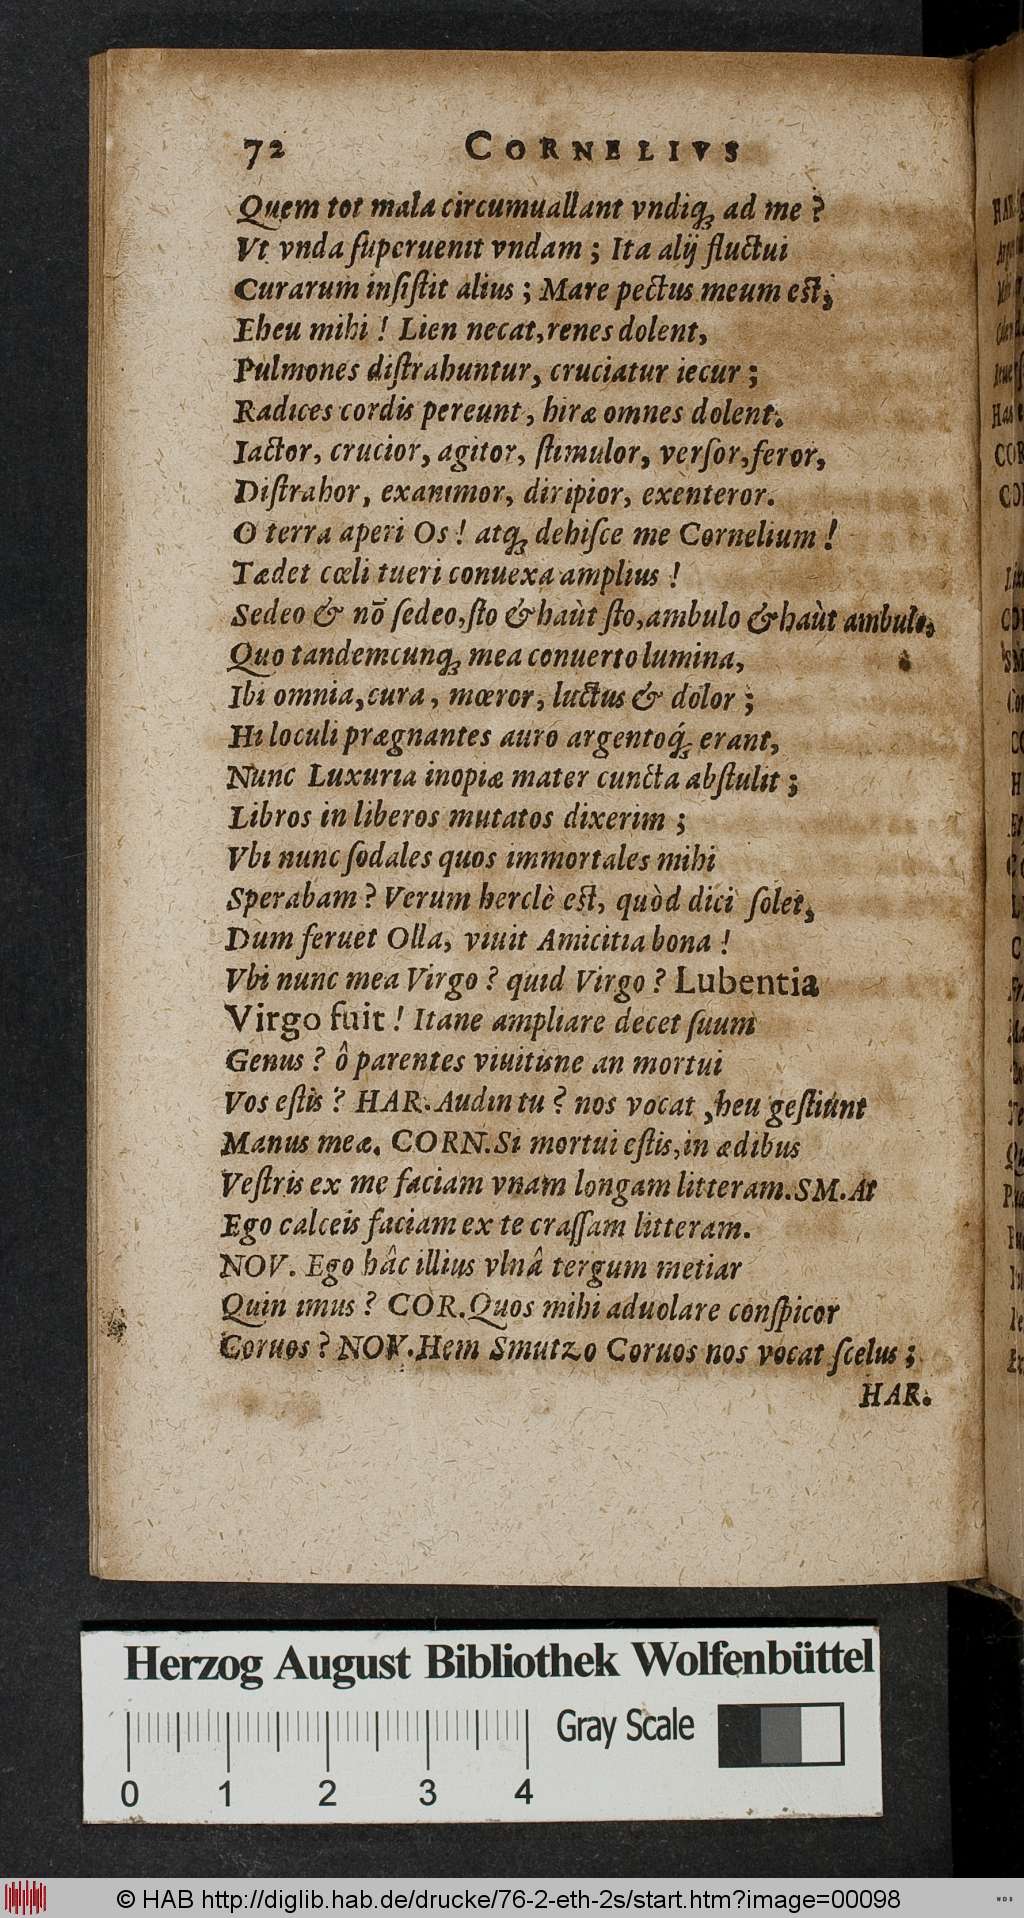 72 CORNELIVS
Quem tot mala circumuallant vndiq; ad me ?
Vt vnda superuenit vndam ; Ita alij fluctui
Curarum insistit alius ; Mare pectus meum est;
Eheu mihi ! Lien necat, renes dolent,
Pulmones distrahuntur, cruciatur iecur ;
Radices cordis pereunt, hiræ omnes dolent.
Iactor, crucior, agitor, stimulor, versor, feror,
Distrahor, exanimor, diripior, exenteror.
O terra aperi Os ! atq; dehisce me Cornelium !
Tædet cœli tueri conuexa amplius !
Sedeo & nō sedeo, sto & haùt sto, ambulo & haùt ambulo.
Quo tandemcunq; mea conuerto lumina,
Ibi omnia, cura, mœror, luctus & dolor ;
Hi loculi prægnantes auro argentoq́; erant,
Nunc Luxuria inopiæ mater cuncta abstulit ;
Libros in liberos mutatos dixerim ;
Vbi nunc sodales quos immortales mihi
Sperabam ? Verum herclè est, quòd dici solet,
Dum feruet Olla, viuit Amicitia bona !
Vbi nunc mea Virgo ? quid Virgo ? Lubentia
Virgo fuit ! Itane ampliare decet suum
Genus ? ô parentes viuitisne an mortui
Vos estis ? HAR. Audin tu ? nos vocat, heu gestiunt
Manus meæ. CORN. Si mortui estis, in ædibus
Vestris ex me faciam vnam longam litteram. SM. At
Ego calceis faciam ex te crassam litteram.
NOV. Ego hâc illius vlnâ tergum metiar
Quin imus ? COR. Quos mihi aduolare conspicor
Coruos ? NOV. Hem Smutzo Coruos nos vocat scelus ;
HAR.
Herzog August Bibliothek Wolfenbüttel
Gray Scale
0 1 2 3 4
© HAB http://diglib.hab.de/drucke/76-2-eth-2s/start.htm?image=00098